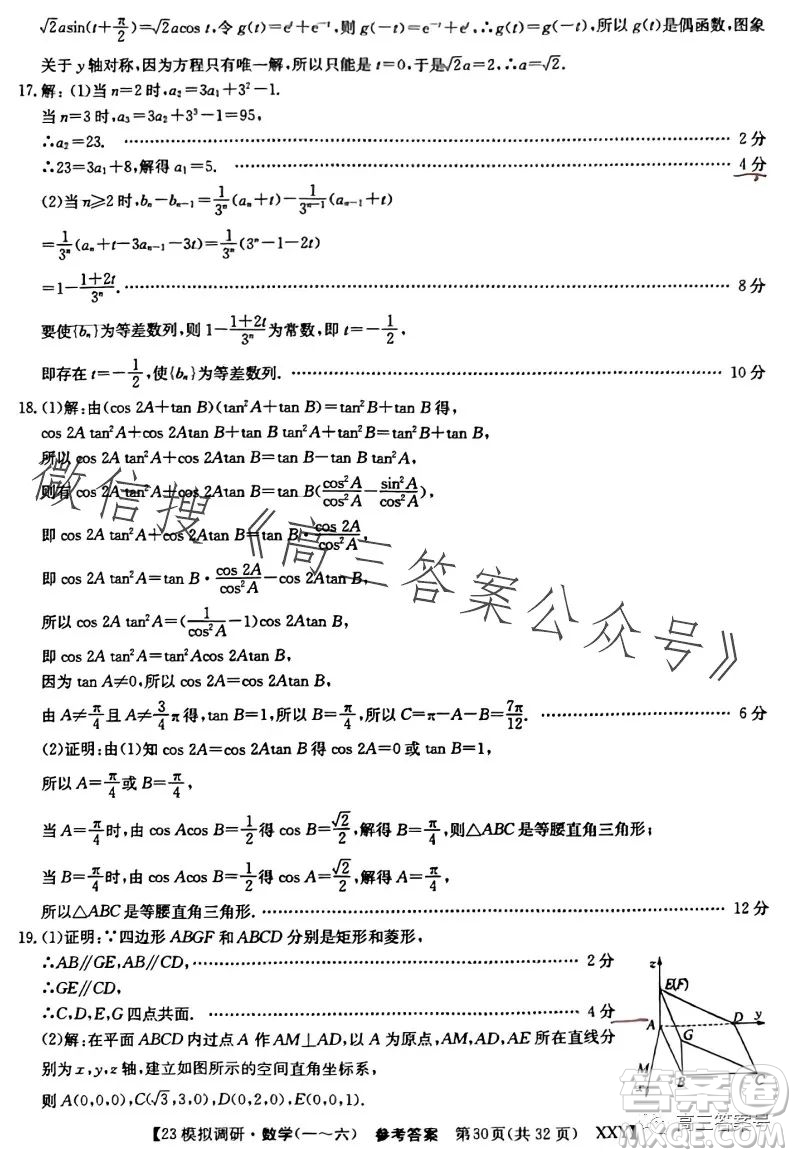 √2asin(t+π/2)=√2acos t,令 g(t)=eᵗ+e⁻ᵗ,则 g(-t)=e⁻ᵗ+eᵗ,∴g(t)=g(-t),所以 g(t)是偶函数,图象
关于 y 轴对称,因为方程只有唯一解,所以只能是 t=0,于是√2a=2,∴a=√2.
17.解:(1)当 n=2 时,a₂=3a₁+3²-1.
当 n=3 时,a₃=3a₂+3³-1=95,
∴a₂=23. …… 2 分
∴23=3a₁+8,解得 a₁=5. …… 4 分
(2)当 n≥2 时,bₙ-bₙ₋₁=1/3ⁿ(aₙ+t)-1/3ⁿ⁻¹(aₙ₋₁+t)
=1/3ⁿ(aₙ+t-3aₙ₋₁-3t)=1/3ⁿ(3ⁿ-1-2t)
=1-(1+2t)/3ⁿ. …… 8 分
要使{bₙ}为等差数列,则 1-(1+2t)/3ⁿ为常数,即 t=-1/2,
即存在 t=-1/2,使{bₙ}为等差数列. …… 10 分
18.(1)解:由(cos 2A+tan B)(tan²A+tan B)=tan²B+tan B 得,
cos 2A tan²A+cos 2Atan B+tan B tan²A+tan²B=tan²B+tan B,
所以 cos 2A tan²A+cos 2Atan B=tan B-tan B tan²A,
则有 cos 2A tan²A+cos 2Atan B=tan B(cos²A/cos²A-sin²A/cos²A),
即 cos 2A tan²A+cos 2Atan B=tan B·cos 2A/cos²A,
即 cos 2A tan²A=tan B·cos 2A/cos²A-cos 2Atan B,
所以 cos 2A tan²A=(1/cos²A-1)cos 2Atan B,
即 cos 2A tan²A=tan²Acos 2Atan B,
因为 tan A≠0,所以 cos 2A=cos 2Atan B,
由 A≠π/4且 A≠3/4π得,tan B=1,所以 B=π/4,所以 C=π-A-B=7π/12. …… 6 分
(2)证明:由(1)知 cos 2A=cos 2Atan B 得 cos 2A=0 或 tan B=1,
所以 A=π/4或 B=π/4,
当 A=π/4时,由 cos Acos B=1/2得 cos B=√2/2,解得 B=π/4,则△ABC 是等腰直角三角形;
当 B=π/4时,由 cos Acos B=1/2得 cos A=√2/2,解得 A=π/4,则△ABC 是等腰直角三角形,
所以△ABC 是等腰直角三角形. …… 12 分
19.(1)证明:∵四边形 ABGF 和 ABCD 分别是矩形和菱形,
∴AB∥GE,AB∥CD, …… 2 分
∴GE∥CD,
∴C,D,E,G 四点共面. …… 4 分
(2)解:在平面 ABCD 内过点 A 作 AM⊥AD,以 A 为原点,AM,AD,AE 所在直线分
别为 x,y,z 轴,建立如图所示的空间直角坐标系,
则 A(0,0,0),C(√3,3,0),D(0,2,0),E(0,0,1),
z
E(F)
D
y
A
G
M
x
B
C
微信搜《高三答案公众号》
答案圈
MXQE.COM
高三答案号
【23 模拟调研·数学(一～六) 参考答案 第30页(共 32 页) XXY】